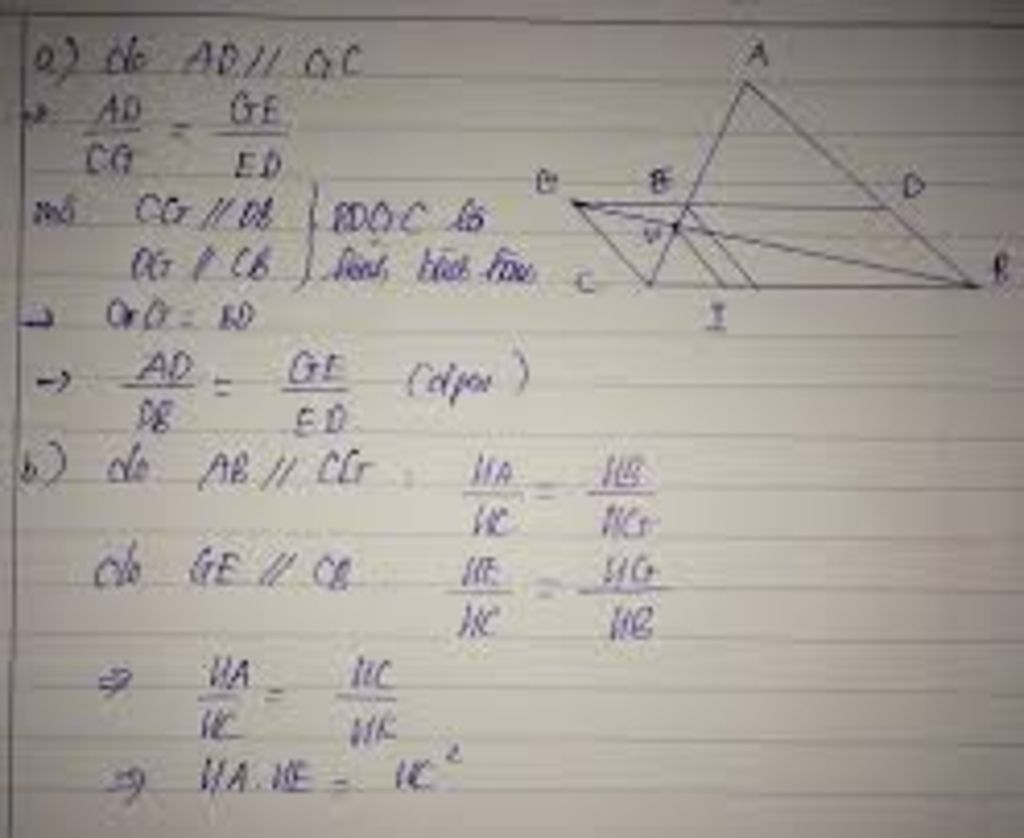 a) do AD // GC
→ AD/CG = GE/ED
mà CG // DB } BDGC là
DG // CB } hình bình hành
→ CG = BD
→ AD/DB = GE/ED (đpcm)
b) do AB // CG : HA/HC = HB/HG
do GE // CB HE/HC = HG/HB
⇒ HA/HC = HC/HE
⇒ HA.HE = HC²
A
G E D
H
C B
I